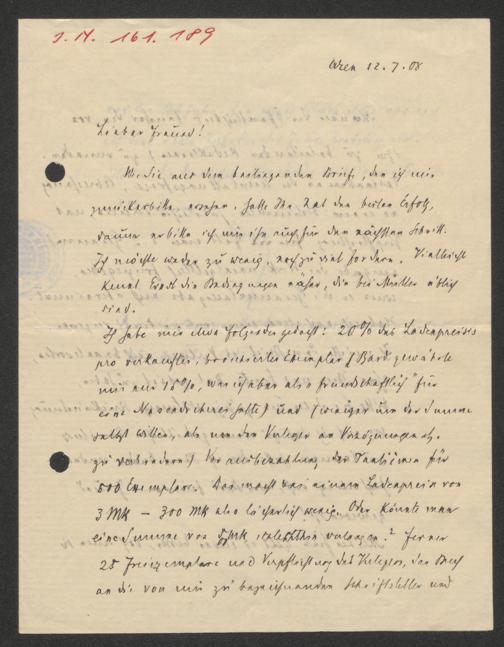 I. N. 161.189
Wien 12.7.08
Lieber Freund!
Wie Sie aus dem beiliegenden Briefe, den ich mir
zurückerbitte, ersehen, hatte Ihr Rat den besten Erfolg,
darum erbitte ich mir ihn auch für den nächsten Schritt.
Ich möchte weder zu wenig, noch zu viel fordern. Vielleicht
kennt Ernst die Bedingungen näher, die bei Müller üblich
sind.
Ich habe mir etwa folgendes gedacht: 20% des Ladenpreises
pro verkauftes, broschiertes Exemplar (Bard gewährte
mir nur 15%, was ich aber als „freundschaftlich" für
eine halte) und (weniger um der Summe
selbst willen, als um den Verleger an
zu verhindern) Vorausbezahlung der Tantièmen für
500 Exemplare. Das macht bei einem Ladenpreis von
3 MK – 300 MK also lächerlich wenig. Oder könnte man
eine Summe von MK verlangen? Ferner
25 Freiexemplare und Verpflichtung des Verlegers, das Buch
an die von mir zu bezeichnenden Schriftsteller und